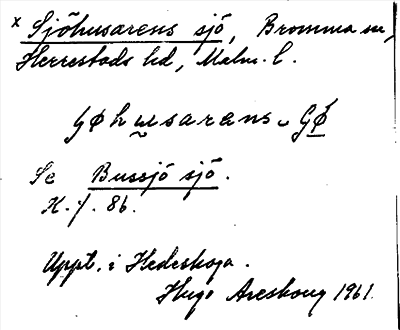 x Sjöhusarens sjö, Bromma sn,
Herrestads hd, Malm. l.
Se Bussjö sjö.
H. y. 86.
Uppt. i Hedeskoga.
Hugo Areskoug 1961.